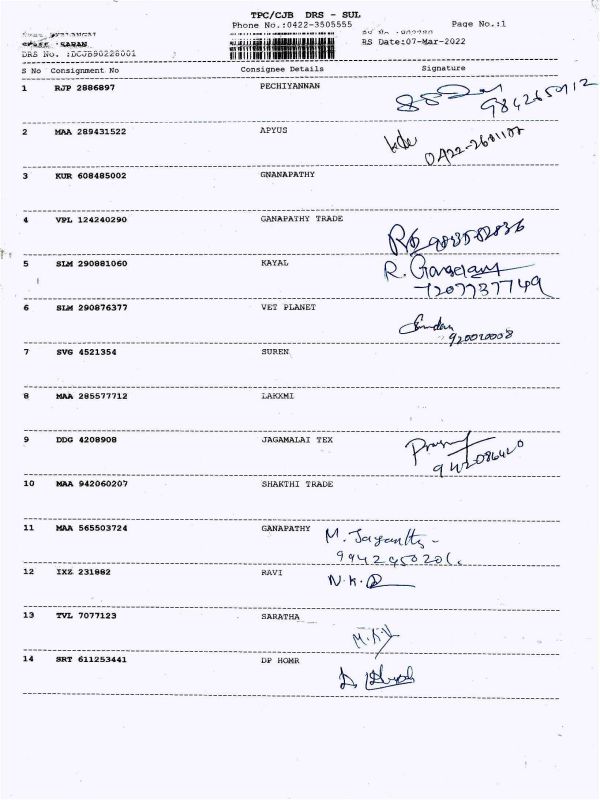 TPC/CJB DRS - SUL
Phone No.:0422-3505555 Page No.:1
RS Date:07-Mar-2022
DRS No. :DCJB90228001
S No Consignment No Consignee Details Signature
1 RJP 2886897 PECHIYANNAN
2 MAA 289431522 APYUS
3 KUR 608485002 GNANAPATHY
4 VPL 124240290 GANAPATHY TRADE
5 SLM 290881060 KAYAL
R.
7207737749
6 SLM 290876377 VET PLANET
920020008
7 SVG 4521354 SUREN
8 MAA 285577712 LAKXMI
9 DDG 4208908 JAGAMALAI TEX
10 MAA 942060207 SHAKTHI TRADE
11 MAA 565503724 GANAPATHY
M. Jayanthi
9942950201.
12 IXZ 231882 RAVI
N.K.
13 TVL 7077123 SARATHA
14 SRT 611253441 DP HOMR